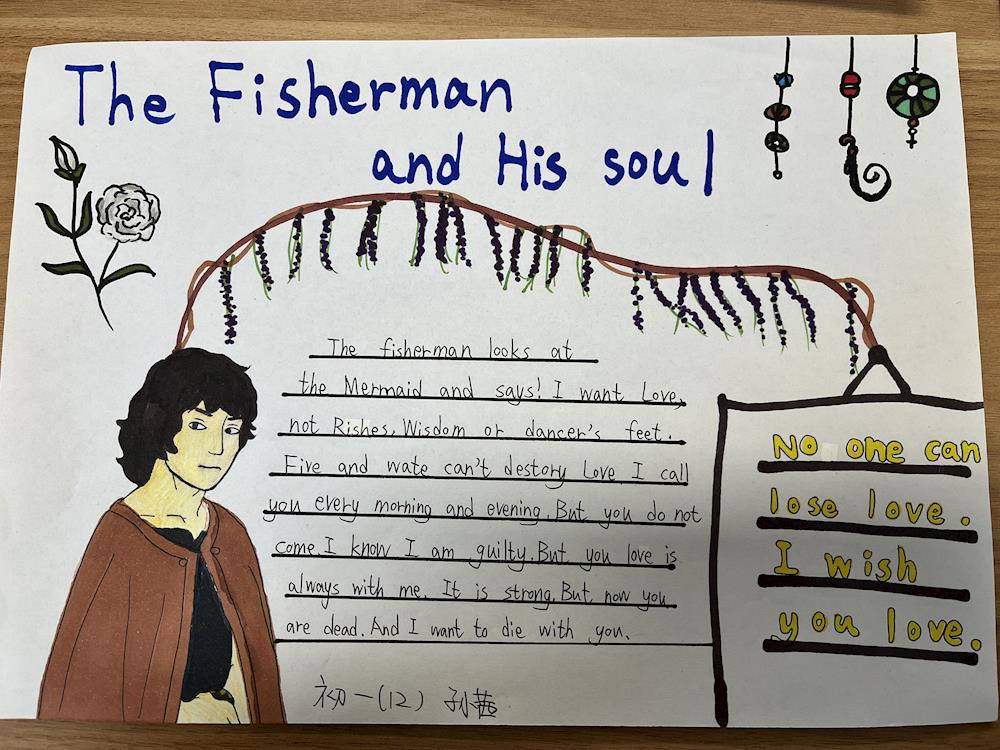 The Fisherman
and His soul
The fisherman looks at
the Mermaid and says! I want Love,
not Rishes, Wisdom or dancer's feet.
Five and wate can't destory Love. I call
you every morning and evening. But you do not
come. I know I am guilty. But you love is
always with me. It is strong. But now you
are dead. And I want to die with you.
No one can
lose love.
I wish
you love.
初一(12) 孙茜